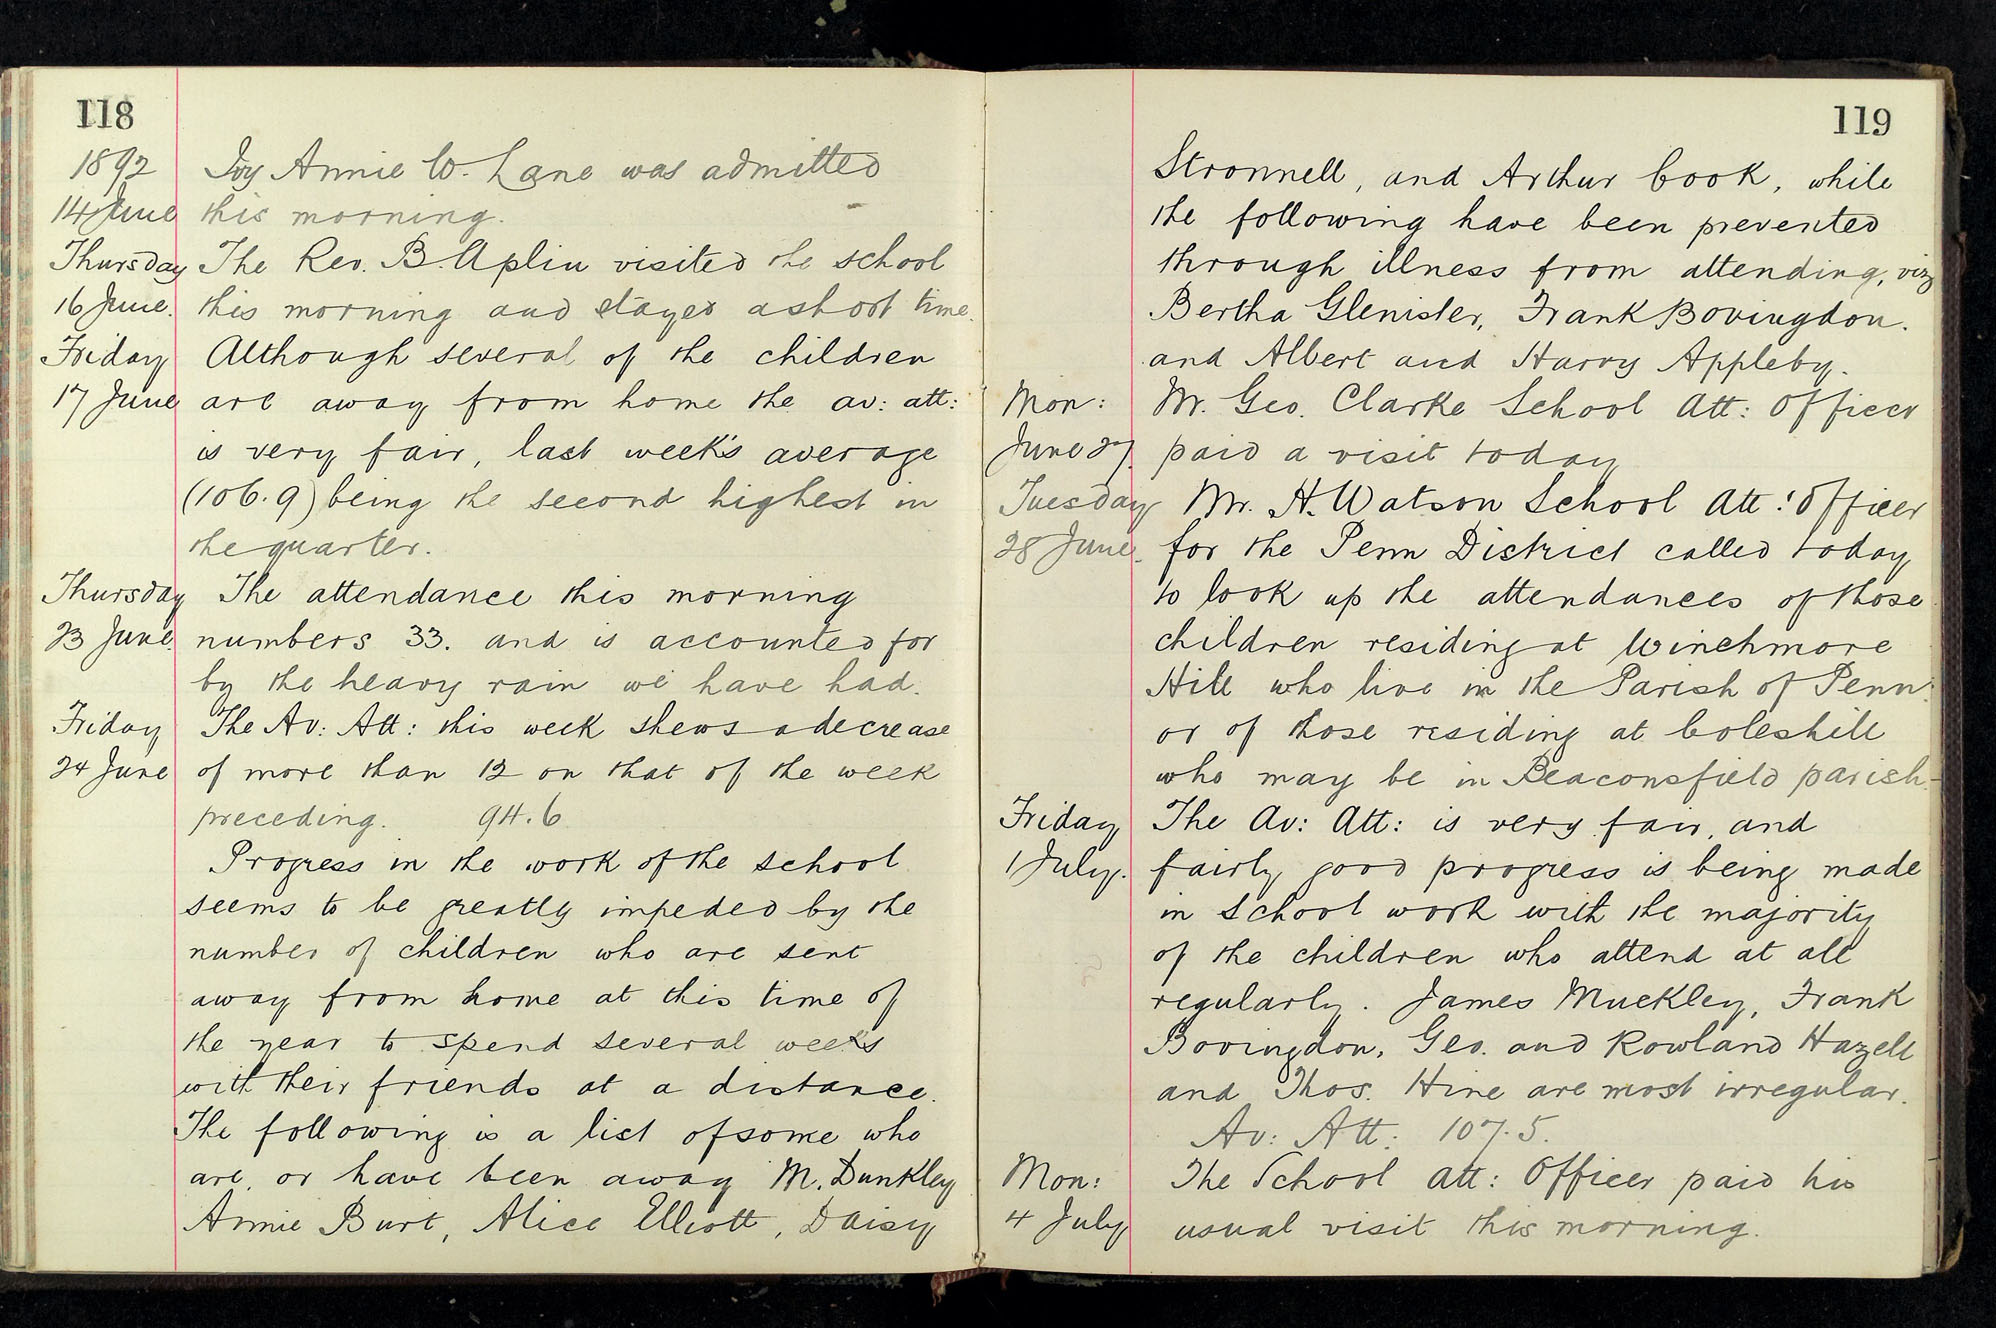 118
1892 Ivy Annie W. Lane was admitted
14 June this morning.
Thursday The Rev. B. Aplin visited the school
16 June. this morning and stayed a short time.
Friday Although several of the children
17 June are away from home the av: att:
is very fair, last week's average
(106.9) being the second highest in
the quarter.
Thursday The attendance this morning
23 June. numbers 33. and is accounted for
by the heavy rain we have had.
Friday The Av: Att: this week shews a decrease
24 June of more than 12 on that of the week
preceding. 94.6
Progress in the work of the school
seems to be greatly impeded by the
number of children who are sent
away from home at this time of
the year to spend several weeks
with their friends at a distance.
The following is a list of some who
are, or have been away M. Dunkley
Annie Burt, Alice Elliott, Daisy
119
Stronnell, and Arthur Cook, while
the following have been prevented
through illness from attending, viz
Bertha Glenister, Frank Bovingdon.
and Albert and Harry Appleby.
Mon: Mr. Geo. Clarke School Att: Officer
June 27. paid a visit today
Tuesday Mr. H. Watson School Att: Officer
28 June. for the Penn District called today
to look up the attendances of those
children residing at Winchmore
Hill who live in the Parish of Penn
or of those residing at Coleshill
who may be in Beaconsfield parish.
Friday The Av: Att: is very fair, and
1 July. fairly good progress is being made
in school work with the majority
of the children who attend at all
regularly. James Muckley, Frank
Bovingdon, Geo. and Rowland Hazell
and Thos. Hine are most irregular.
Av: Att: 107.5.
Mon: The School Att: Officer paid his
4 July usual visit this morning.